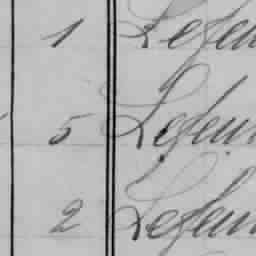 1 Lefeu
5 Lefeu
2 Lefeu